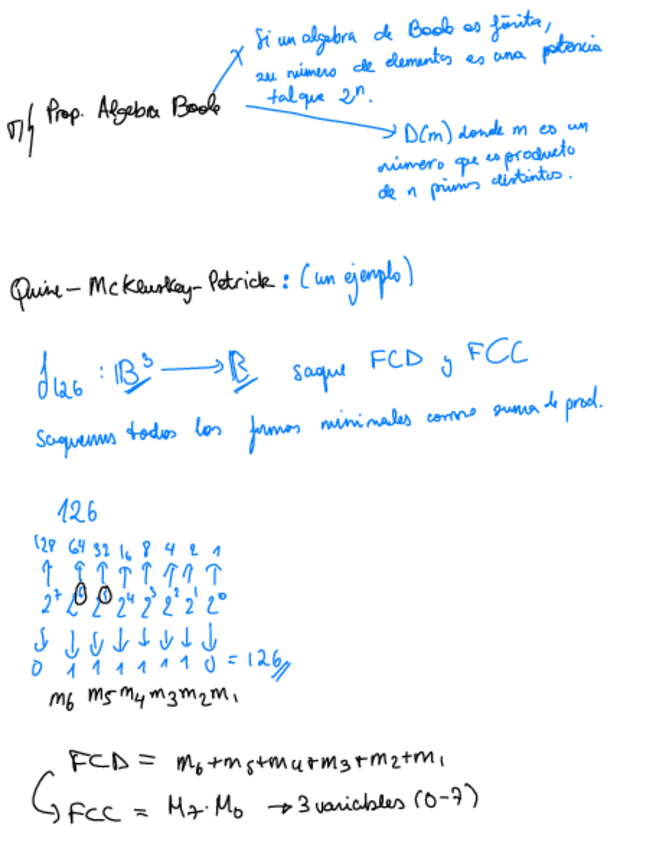 Si un algebra de Boole es finita,
su número de elementos es una potencia
tal que 2^n.
Prop. Algebra Boole
D(m) donde m es un
número que es producto
de n primos distintos.
Quine - McKluskey - Petrick : (un ejemplo)
f126 : B^3 → B saque FCD y FCC
Saquemos todos las formas minimales como suma de prod.
126
128 64 32 16 8 4 2 1
↑ ↑ ↑ ↑ ↑ ↑ ↑ ↑
2^7 2^6 2^5 2^4 2^3 2^2 2^1 2^0
↓ ↓ ↓ ↓ ↓ ↓ ↓ ↓
0 1 1 1 1 1 1 0 = 126
m6 m5 m4 m3 m2 m1
FCD = m6+m5+m4+m3+m2+m1
FCC = M7·M0 → 3 variables (0-7)